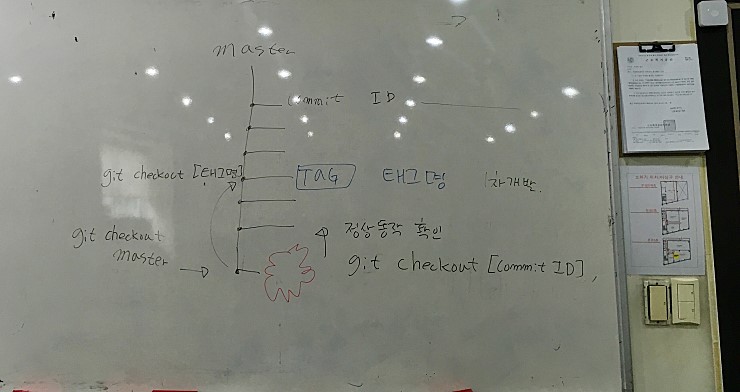 master
commit ID
git checkout [태그명]
TAG 태그명 1차개발.
정상동작 확인
git checkout
master
git checkout [commit ID]